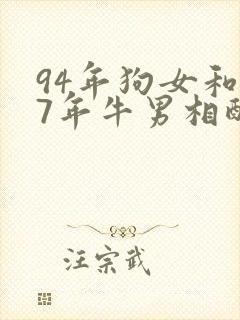 94年狗女和
7年牛男相配
汪宗武